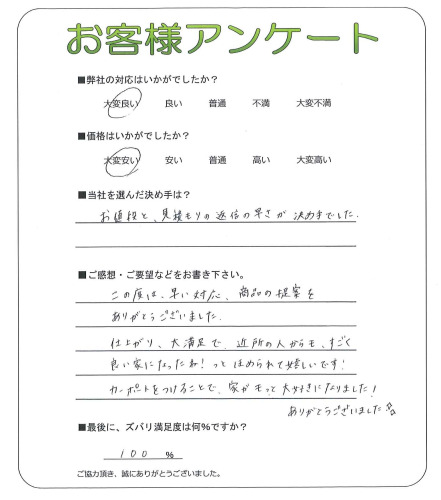 お客様アンケート
■弊社の対応はいかがでしたか？
大変良い 良い 普通 不満 大変不満
■価格はいかがでしたか？
大変安い 安い 普通 高い 大変高い
■当社を選んだ決め手は？
お値段と、見積もりの返信の早さが決め手でした。
■ご感想・ご要望などをお書き下さい。
この度は、早い対応、商品の提案を
ありがとうございました。
仕上がり、大満足で、近所の人からも、すごく
良い家になったね！っとほめられて嬉しいです！
カーポートをつけることで、家がもっと大好きになりました！
ありがとうございました
■最後に、ズバリ満足度は何%ですか？
100 %
ご協力頂き、誠にありがとうございました。